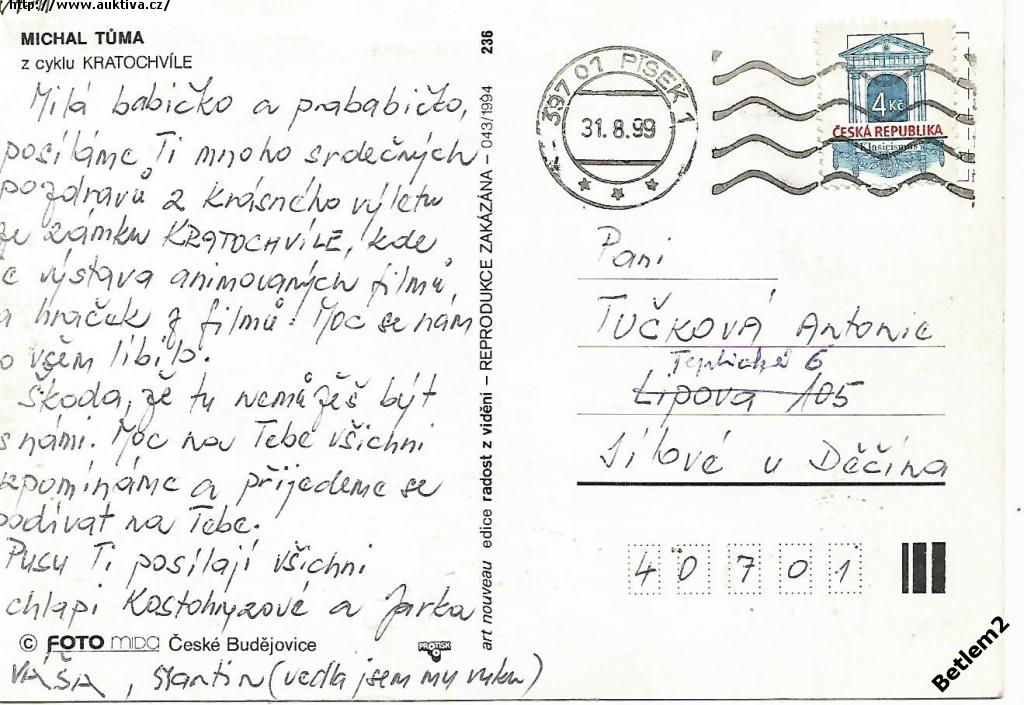 http://www.auktiva.cz/
MICHAL TŮMA
z cyklu KRATOCHVÍLE
Milá babičko a prababičko,
posíláme Ti mnoho srdečných
pozdravů z krásného výletu
ze zámku KRATOCHVÍLE, kde
e výstava animovaných filmů,
a hraček z filmů. Moc se nám
o všem líbilo.
Škoda, že tu nemůžeš být
s námi. Moc na Tebe všichni
zpomínáme a přijedeme se
podívat na Tebe.
Pusu Ti posílají všichni
chlapi a Jarka
© FOTO MIDA České Budějovice
PROTISK
VÁŠA, Martin (vedla jsem mu ruku)
art nouveau edice radost z vidění – REPRODUKCE ZAKÁZÁNA – 043/1994
236
397 01 PÍSEK 1
31.8.99
4 Kč
ČESKÁ REPUBLIKA
Klasicismus
Paní
TUČKOVÁ Antonie
Teplická 6
Lipova 105
Jílové u Děčína
40701
Betlem2